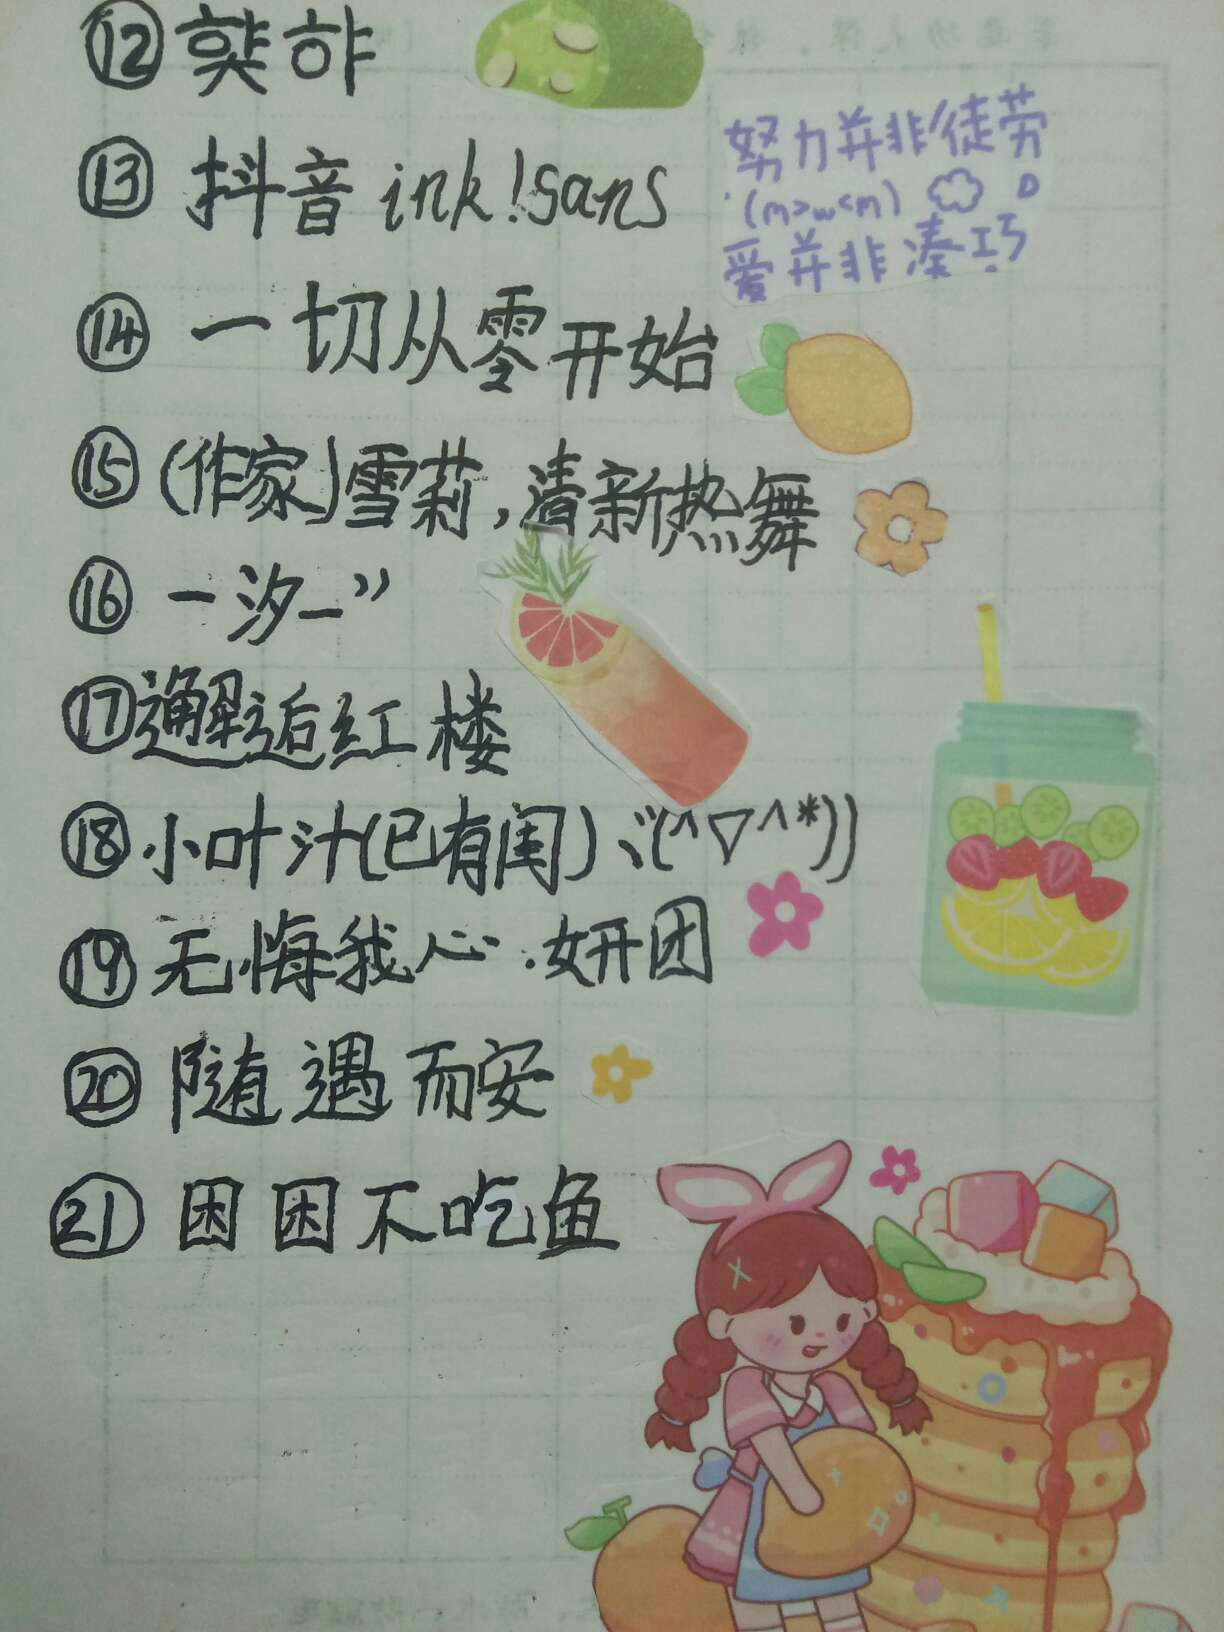 ⑫
⑬ 抖音 ink!sans
努力并非徒劳
(m>w<m)
爱并非凑巧
⑭ 一切从零开始
⑮ (作家)雪莉,清新热舞
⑯ 一汐_”
⑰ 邂逅红楼
⑱ 小叶汁(已有闺)ヾ(^▽^*))
⑲ 无悔我心·妍团
⑳ 随遇而安
㉑ 困困不吃鱼